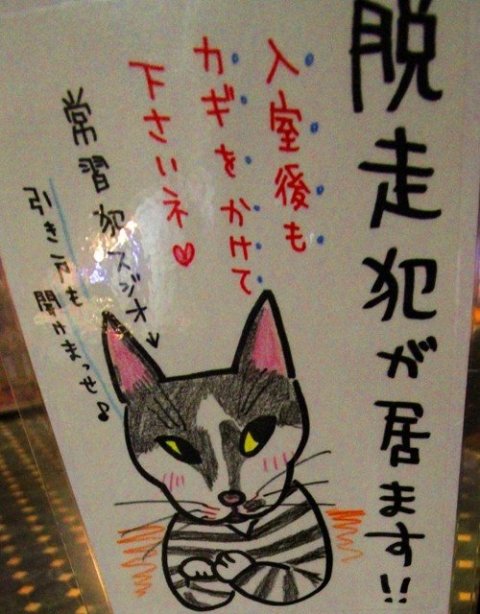 脱走犯が居ます!!
入室後も
カギをかけて
下さいネ♥
常習犯スジオ↓
引き戸も
開けまっせ♪